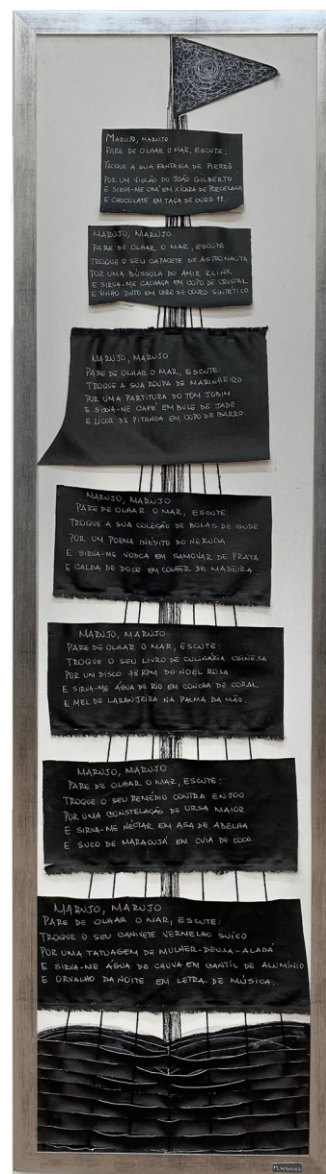 MARUJO, MARUJO
PARE DE OLHAR O MAR, ESCUTE:
TROQUE A SUA FANTASIA DE PIERRÔ
POR UM VIOLÃO DO JOÃO GILBERTO
E SIRVA-ME CHÁ EM XÍCARA DE PORCELANA
E CHOCOLATE EM TAÇA DE OURO
MARUJO, MARUJO
PARE DE OLHAR O MAR, ESCUTE
TROQUE O SEU CAPACETE DE ASTRONAUTA
POR UMA BÚSSOLA DO AMIR KLINK
E SIRVA-ME CACHAÇA EM COPO DE CRISTAL
E VINHO TINTO EM ODRE DE COURO SINTÉTICO.
MARUJO, MARUJO
PARE DE OLHAR O MAR, ESCUTE:
TROQUE A SUA ROUPA DE MARINHEIRO
POR UMA PARTITURA DO TOM JOBIM
E SIRVA-ME CAFÉ EM BULE DE JADE
E LICOR DE PITANGA EM COPO DE BARRO.
MARUJO, MARUJO
PARE DE OLHAR O MAR, ESCUTE:
TROQUE A SUA COLEÇÃO DE BOLAS DE GUDE
POR UM POEMA INÉDITO DO NERUDA
E SIRVA-ME VODCA EM SAMOVAR DE PRATA
E CALDA DE DOCE EM COLHER DE MADEIRA
MARUJO, MARUJO
PARE DE OLHAR O MAR, ESCUTE:
TROQUE O SEU LIVRO DE CULINÁRIA CHINESA
POR UM DISCO 78 RPM DO NOEL ROSA
E SIRVA-ME ÁGUA DE RIO EM CONCHA DE CORAL
E MEL DE LARANJEIRA NA PALMA DA MÃO.
MARUJO, MARUJO
PARE DE OLHAR O MAR, ESCUTE:
TROQUE O SEU REMÉDIO CONTRA ENJOO
POR UMA CONSTELAÇÃO DE URSA MAIOR
E SIRVA-ME NÉCTAR EM ASA DE ABELHA
E SUCO DE MARACUJÁ EM CUIA DE COCO.
MARUJO, MARUJO
PARE DE OLHAR O MAR, ESCUTE:
TROQUE O SEU CANIVETE VERMELHO SUÍÇO
POR UMA TATUAGEM DE MULHER-DEUSA-ALADA
E SIRVA-ME ÁGUA DE CHUVA EM CANTIL DE ALUMÍNIO
E ORVALHO DA NOITE EM LETRA DE MÚSICA.